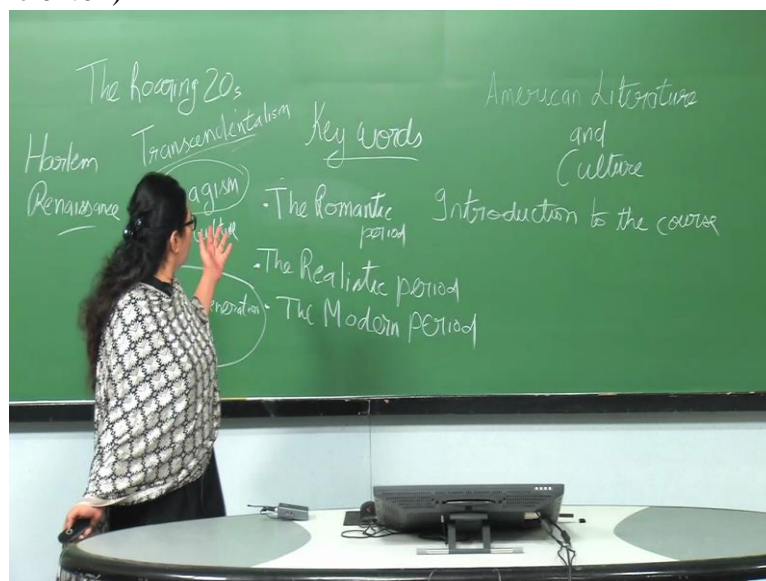 The Roaring 20s
Harlem
Renaissance
Transcendentalism
agism
culture
eneration
Key words
• The Romantic
period
• The Realistic period
• The Modern period
American Literature
and
Culture
Introduction to the course